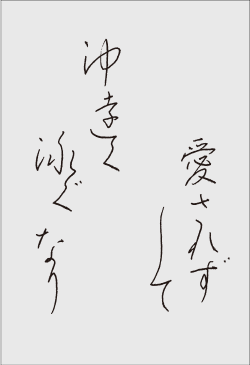 愛されずして
沖遠く
泳ぐなり